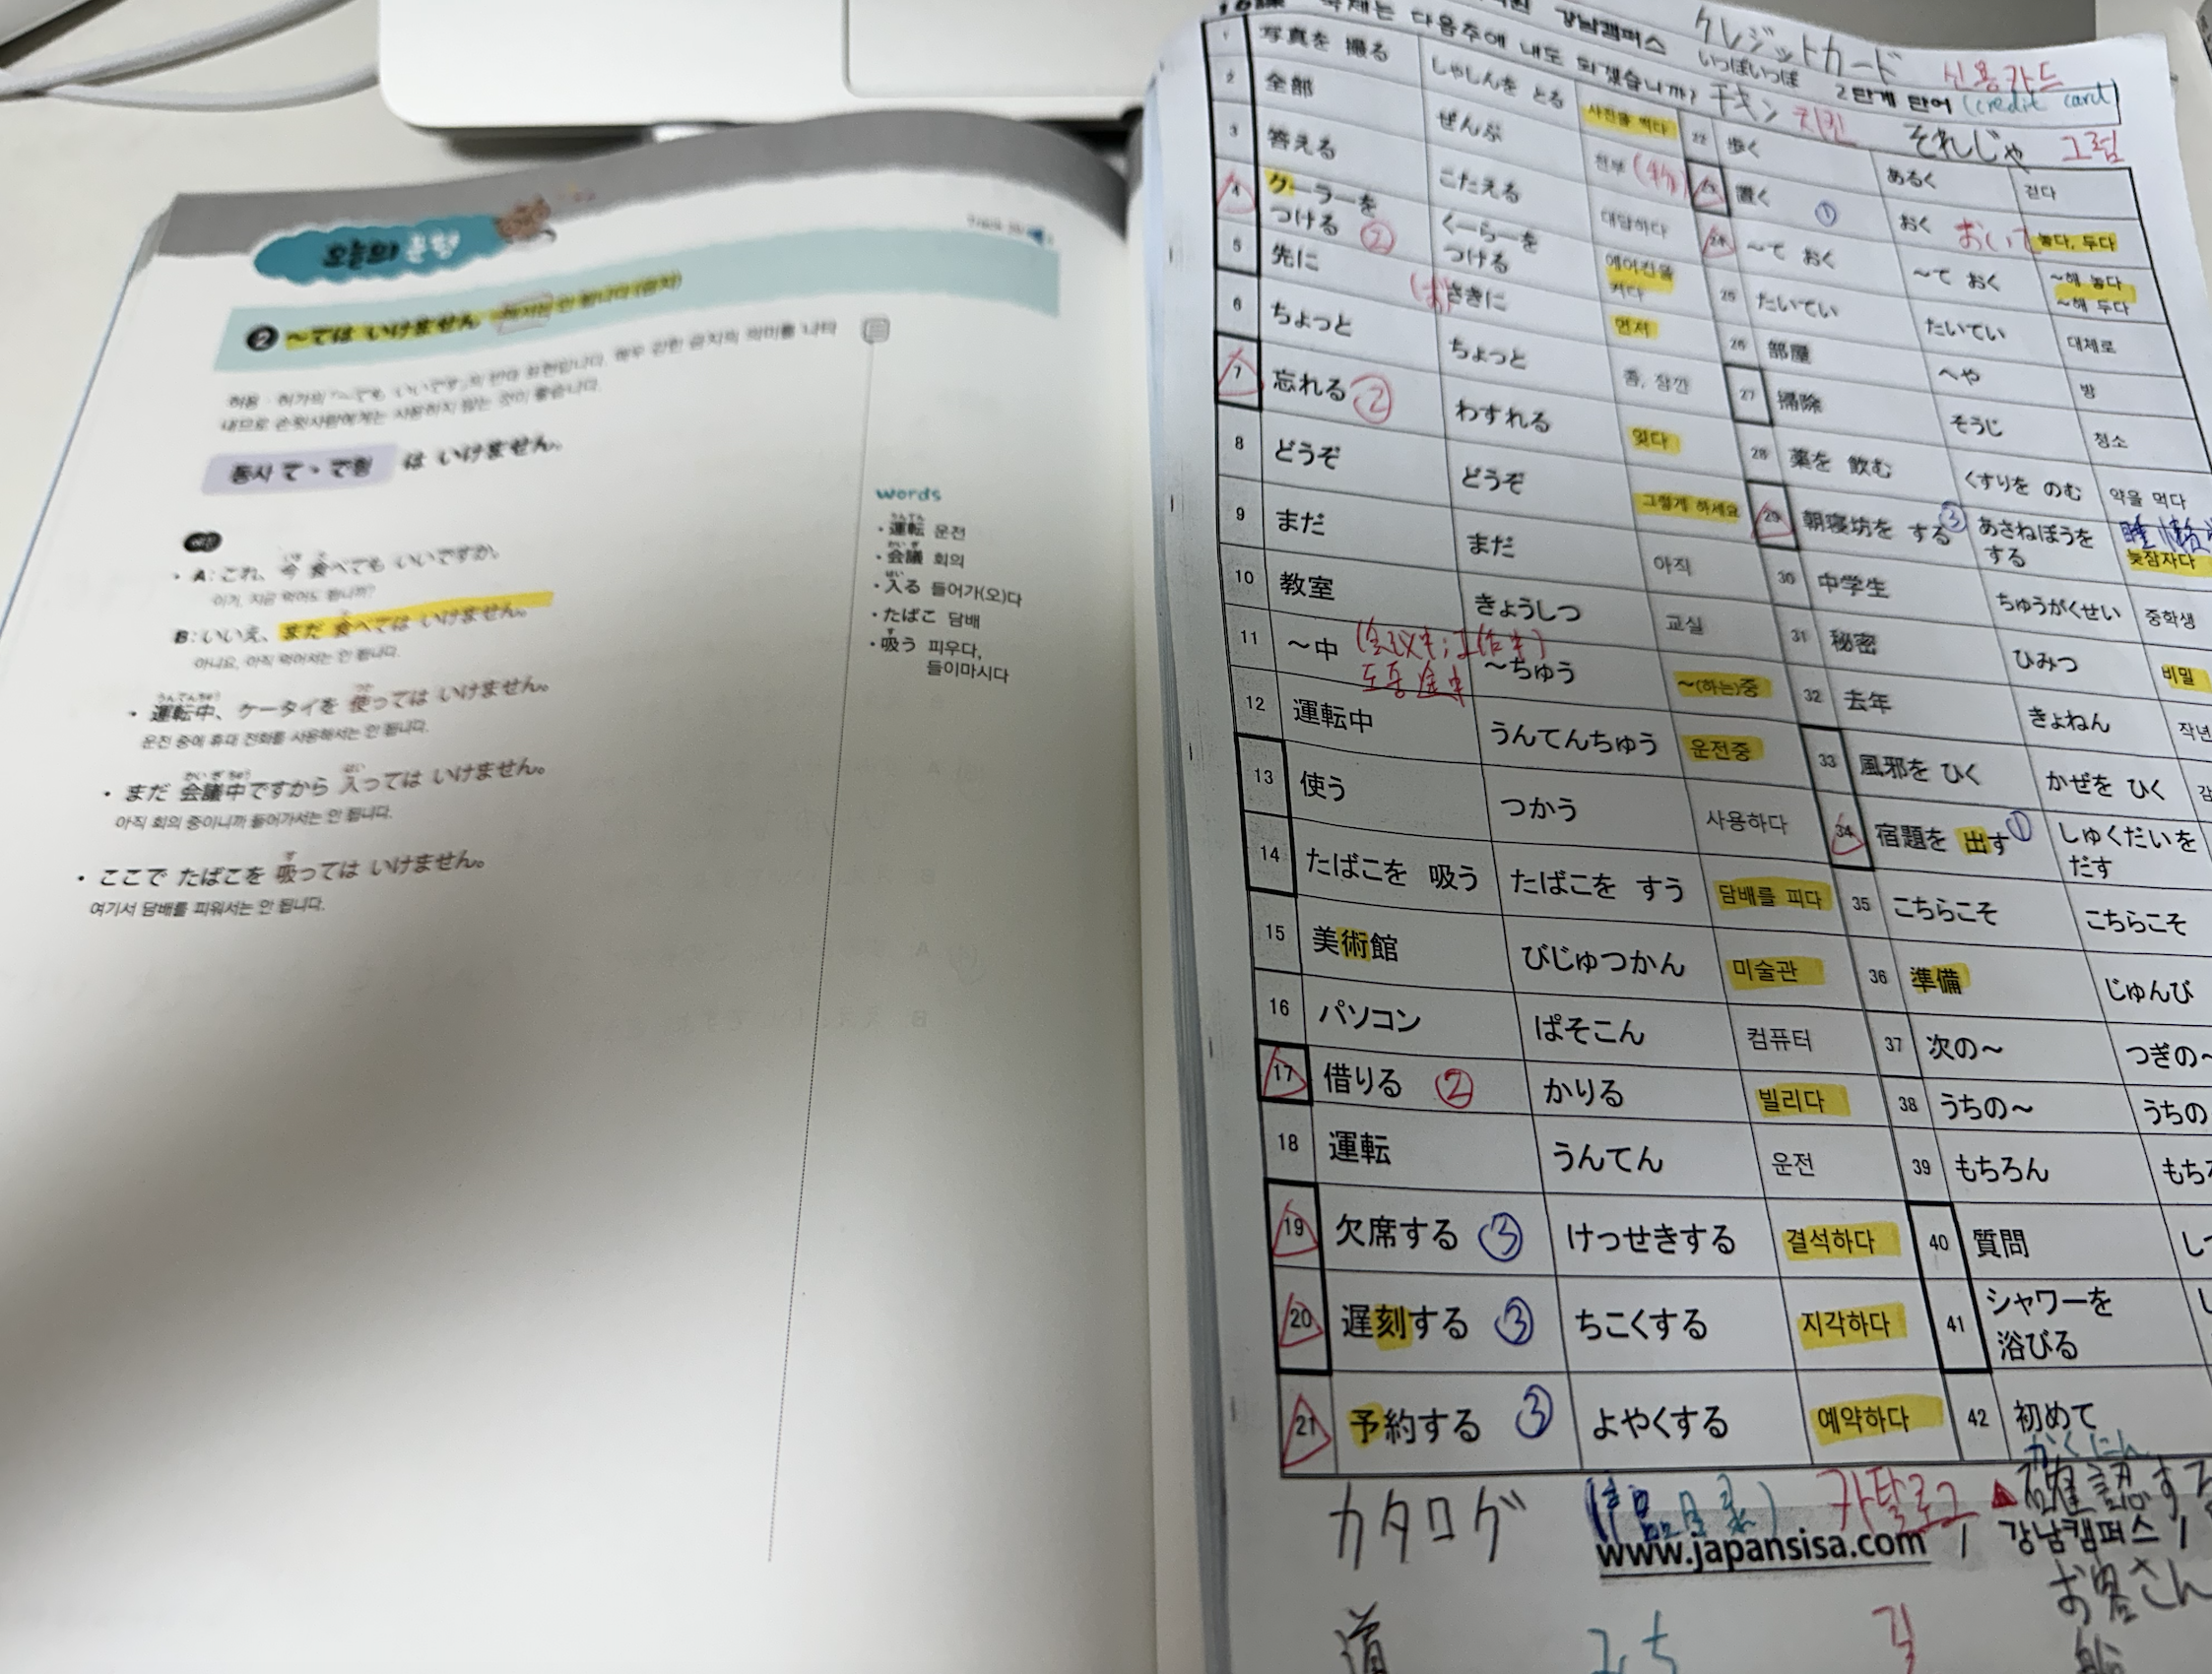 오늘의 문형
② ～ては いけません ~해서는 안 됩니다 (금지)
허용·허가의 「～ても いいです」의 반대 표현입니다. 매우 강한 금지의 의미를 나타
내므로 손윗사람에게는 사용하지 않는 것이 좋습니다.
동사 て・で형 は いけません。
• A: これ、今 食べても いいですか。
이거, 지금 먹어도 됩니까?
B: いいえ、まだ 食べては いけません。
아니요, 아직 먹어서는 안 됩니다.
うんてんちゅう つか
• 運転中、ケータイを 使っては いけません。
운전 중에 휴대 전화를 사용해서는 안 됩니다.
かいぎちゅう はい
• まだ 会議中ですから 入っては いけません。
아직 회의 중이니까 들어가서는 안 됩니다.
す
• ここで たばこを 吸っては いけません。
여기서 담배를 피워서는 안 됩니다.
words
うんてん
• 運転 운전
かいぎ
• 会議 회의
はい
• 入る 들어가(오)다
• たばこ 담배
す
• 吸う 피우다,
들이마시다
강남캠퍼스 クレジットカード 신용카드
숙제는 다음주에 내도 되겠습니까? いっぽいっぽ 2단계 단어 (credit card)
チキン 치킨 それじゃ 그럼
1 写真を 撮る しゃしんを とる 사진을 찍다
2 全部 ぜんぶ 전부
3 答える こたえる 대답하다
4 クーラーを つける ② くーらーを つける 에어컨을 켜다
5 先に (お)さきに 먼저
6 ちょっと ちょっと 좀, 잠깐
7 忘れる ② わすれる 잊다
8 どうぞ どうぞ 그렇게 하세요
9 まだ まだ 아직
10 教室 きょうしつ 교실
11 ～中 ～ちゅう ～(하는)중
12 運転中 うんてんちゅう 운전중
13 使う つかう 사용하다
14 たばこを 吸う たばこを すう 담배를 피다
15 美術館 びじゅつかん 미술관
16 パソコン ぱそこん 컴퓨터
17 借りる ② かりる 빌리다
18 運転 うんてん 운전
19 欠席する ③ けっせきする 결석하다
20 遅刻する ③ ちこくする 지각하다
21 予約する ③ よやくする 예약하다
22 歩く あるく 걷다
23 置く ① おく おいて 놓다, 두다
24 ～て おく ～て おく ~해 놓다 ~해 두다
25 たいてい たいてい 대체로
26 部屋 へや 방
27 掃除 そうじ 청소
28 薬を 飲む くすりを のむ 약을 먹다
29 朝寝坊を する ③ あさねぼうを する 늦잠자다
30 中学生 ちゅうがくせい 중학생
31 秘密 ひみつ 비밀
32 去年 きょねん 작년
33 風邪を ひく かぜを ひく
34 宿題を 出す ① しゅくだいを だす
35 こちらこそ こちらこそ
36 準備 じゅんび
37 次の～ つぎの～
38 うちの～ うちの
39 もちろん
40 質問
41 シャワーを 浴びる
42 初めて
かくにん
カタログ 카탈로그 ▲確認する
www.japansisa.com / 강남캠퍼스 /
お客さん
道 みち 길